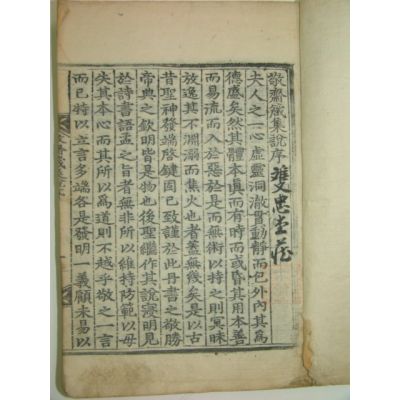 敬齋箴集說序
雙忠堂藏
夫人之一心虛靈洞澈貫動靜而包外內其為
德盛矣然其體本眞而有時而或昏其用本善
而易流而入於惡於是而無術以持之則冥昧
放逸其不淵溺而焦火也者盖無幾矣是以古
昔聖神發端啓鍵固已致謹於此丹書之敬勝
帝典之欽明皆是物也後聖繼作其說寖明見
於詩書語孟之旨者無非所以維持防範以毋
失其本心而其所以為道則不越乎敬之一言
而已特以立言多端各是發明一義顧未易以